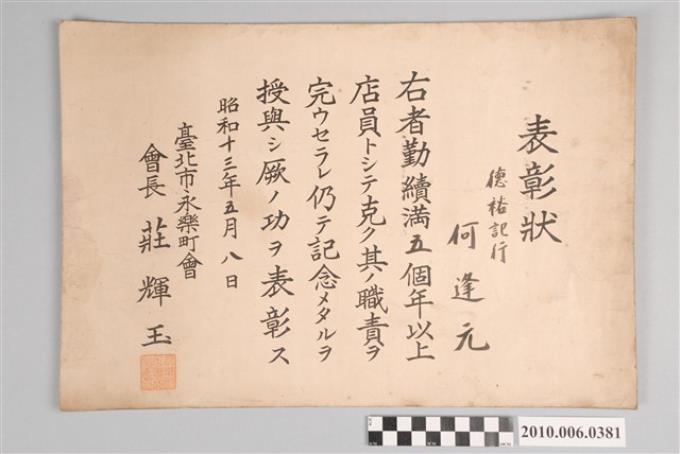 表彰狀
德裕記行
何逢元
右者勤續滿五個年以上
店員トシテ克ク其ノ職責ヲ
完ウセラレ仍テ記念メタルヲ
授與シ厥ノ功ヲ表彰ス
昭和十三年五月八日
臺北市永樂町會
會長 莊輝玉
2010.006.0381